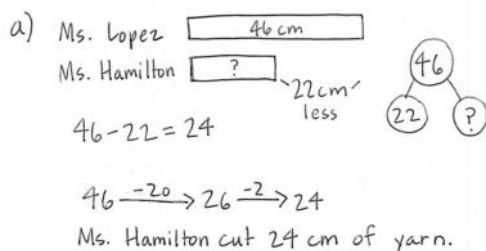 a) Ms. Lopez 46 cm
Ms. Hamilton ?
22 cm
less
46
22 ?
46 - 22 = 24
46 -20→ 26 -2→ 24
Ms. Hamilton cut 24 cm of yarn.